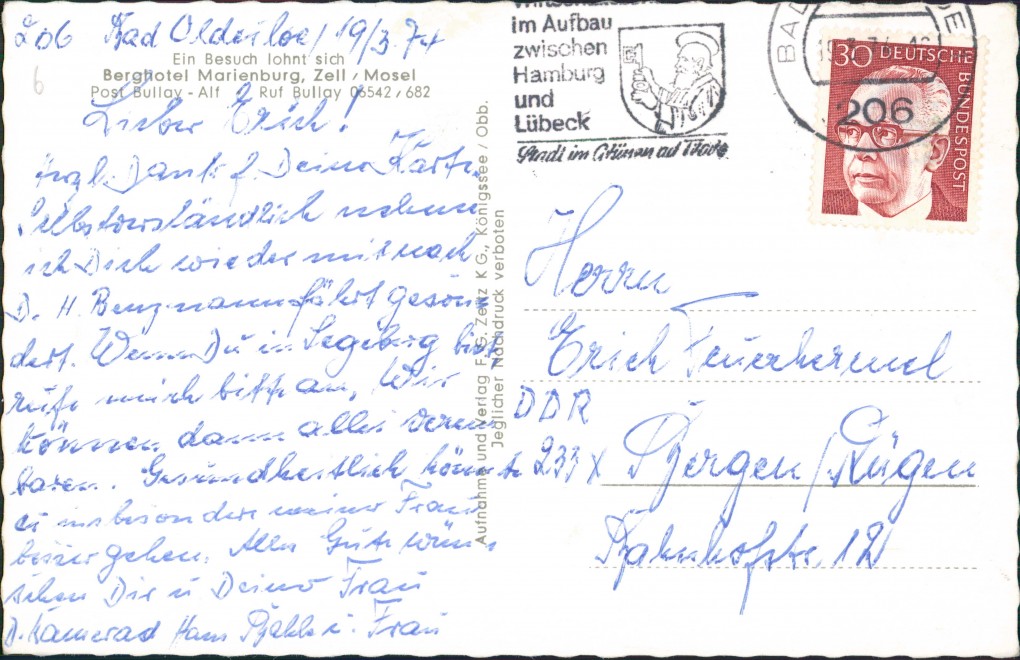 206 Bad Oldesloe, 19/3.74
Ein Besuch lohnt sich
Berghotel Marienburg, Zell/Mosel
Post Bullay - Alf Ruf Bullay 06542/682
6
Lieber Erich!
Herzl. Dank f. Deine Karte.
Selbstverständlich nehme
ich Dich wieder mit nach
D. H. Benzmann fährt geson
dert. Wenn Du in Segeberg bist
rufe mich bitte an, Wir
können dann alles verein
baren. Gesundheitlich könnte
es insbesondere meiner Frau
besser gehen. Alles Gute wün
schen Dir u Deiner Frau
D. Kamerad Hans u. Frau
Aufnahme und Verlag F. G. Zeitz KG., Königssee / Obb.
Jeglicher Nachdruck verboten
im Aufbau
zwischen
Hamburg
und
Lübeck
Stadt im Grünen
BAD
206
30 DEUTSCHE
BUNDESPOST
Herrn
Erich Feuerhermel
DDR
233 X Bergen/Rügen
Bahnhofstr. 12